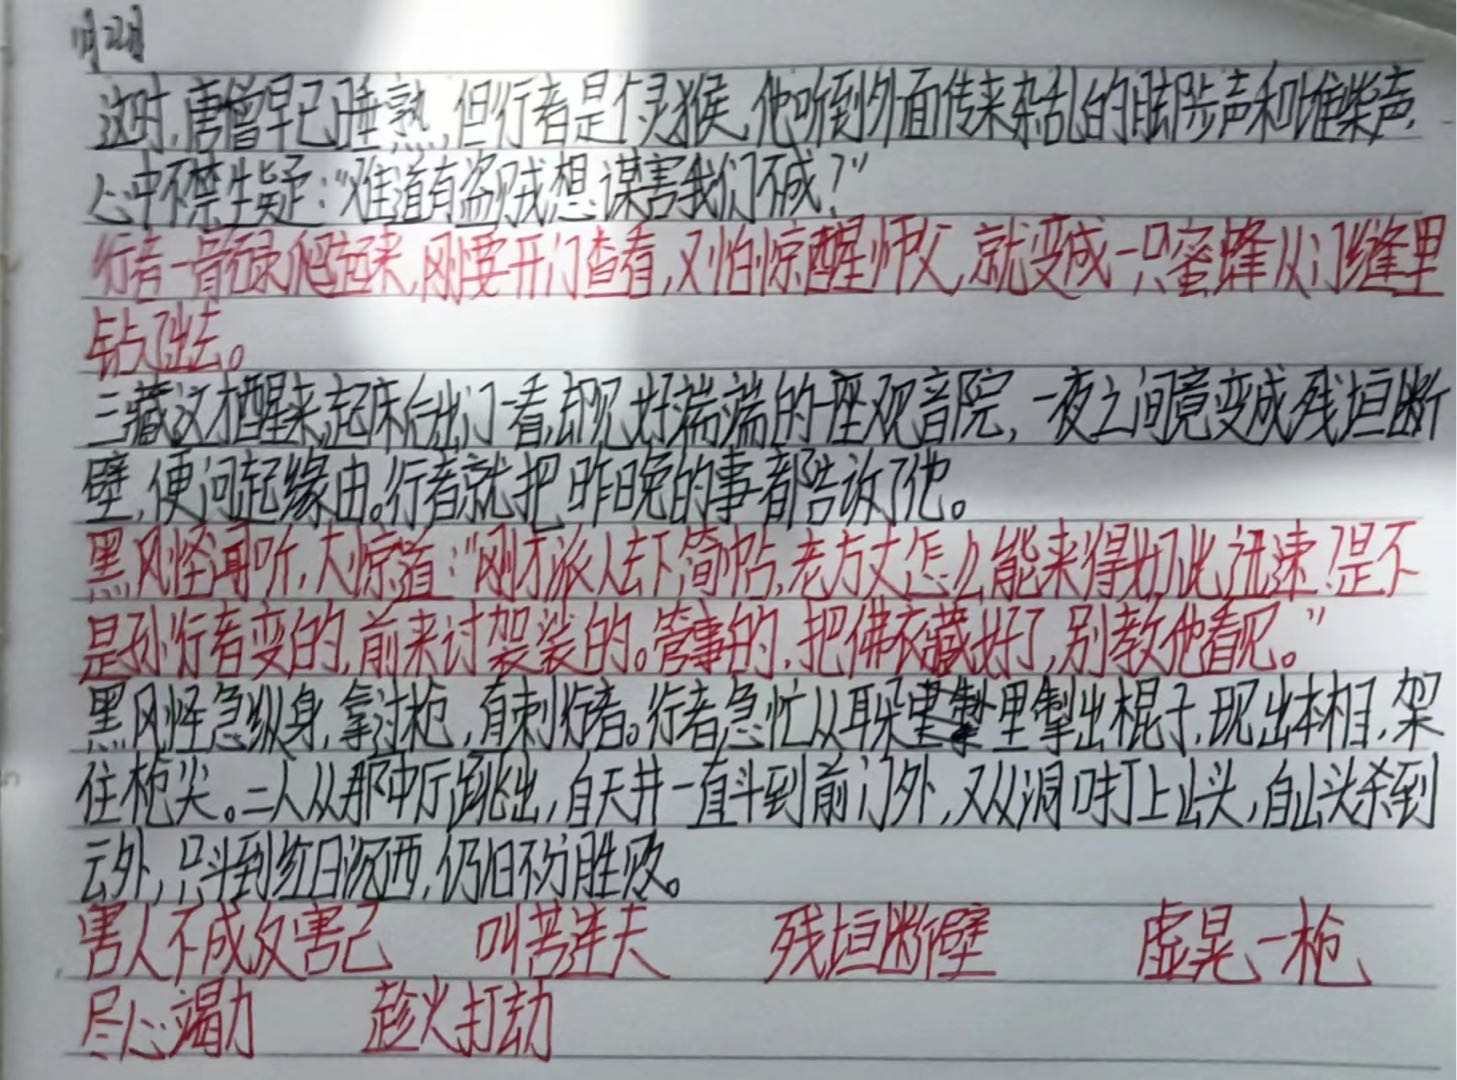 11月22日
这时,唐僧早已睡熟,但行者是个灵猴,他听到外面传来杂乱的脚步声和堆柴声,
心中不禁生疑:“难道有盗贼想谋害我们不成?”
行者一骨碌爬起来,刚要开门查看,又怕惊醒师父,就变成一只蜜蜂从门缝里
钻了出去。
三藏这才醒来,起床后出门一看,却见好端端的一座观音院,一夜之间竟变成残垣断
壁,便问起缘由。行者就把昨晚的事都告诉了他。
黑风怪闻听,大惊道:“刚才派人去下简帖,老方丈怎么能来得如此迅速?是不
是孙行者变的,前来讨袈裟的。管事的,把佛衣藏好了,别教他看见。”
黑风怪急纵身,拿过枪,直刺行者。行者急忙从耳朵里掣出棍子,现出本相,架
住枪尖。二人从那中厅跳出,自天井一直斗到前门外,又从洞口打上山头,自山头杀到
云外,只斗到红日沉西,仍旧不分胜败。
害人不成反害己 叫苦连天 残垣断壁 虚晃一枪
尽心竭力 趁火打劫